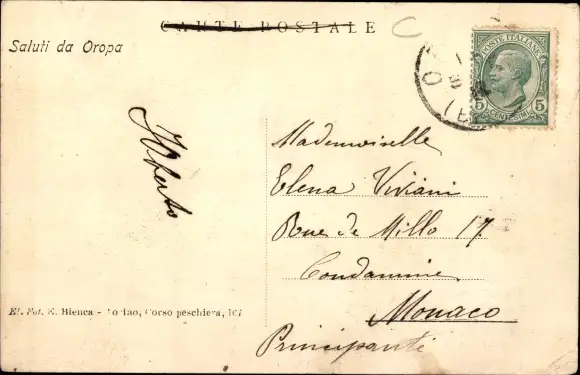 CARTE POSTALE
Saluti da Oropa
POSTE ITALIANE
5 5
CENTESIMI
Alberto
Mademoiselle
Elena Viviani
Rue de Millo 17
Condamine
Monaco
Principauté
E. Bienca - Torino, Corso peschiera, 167